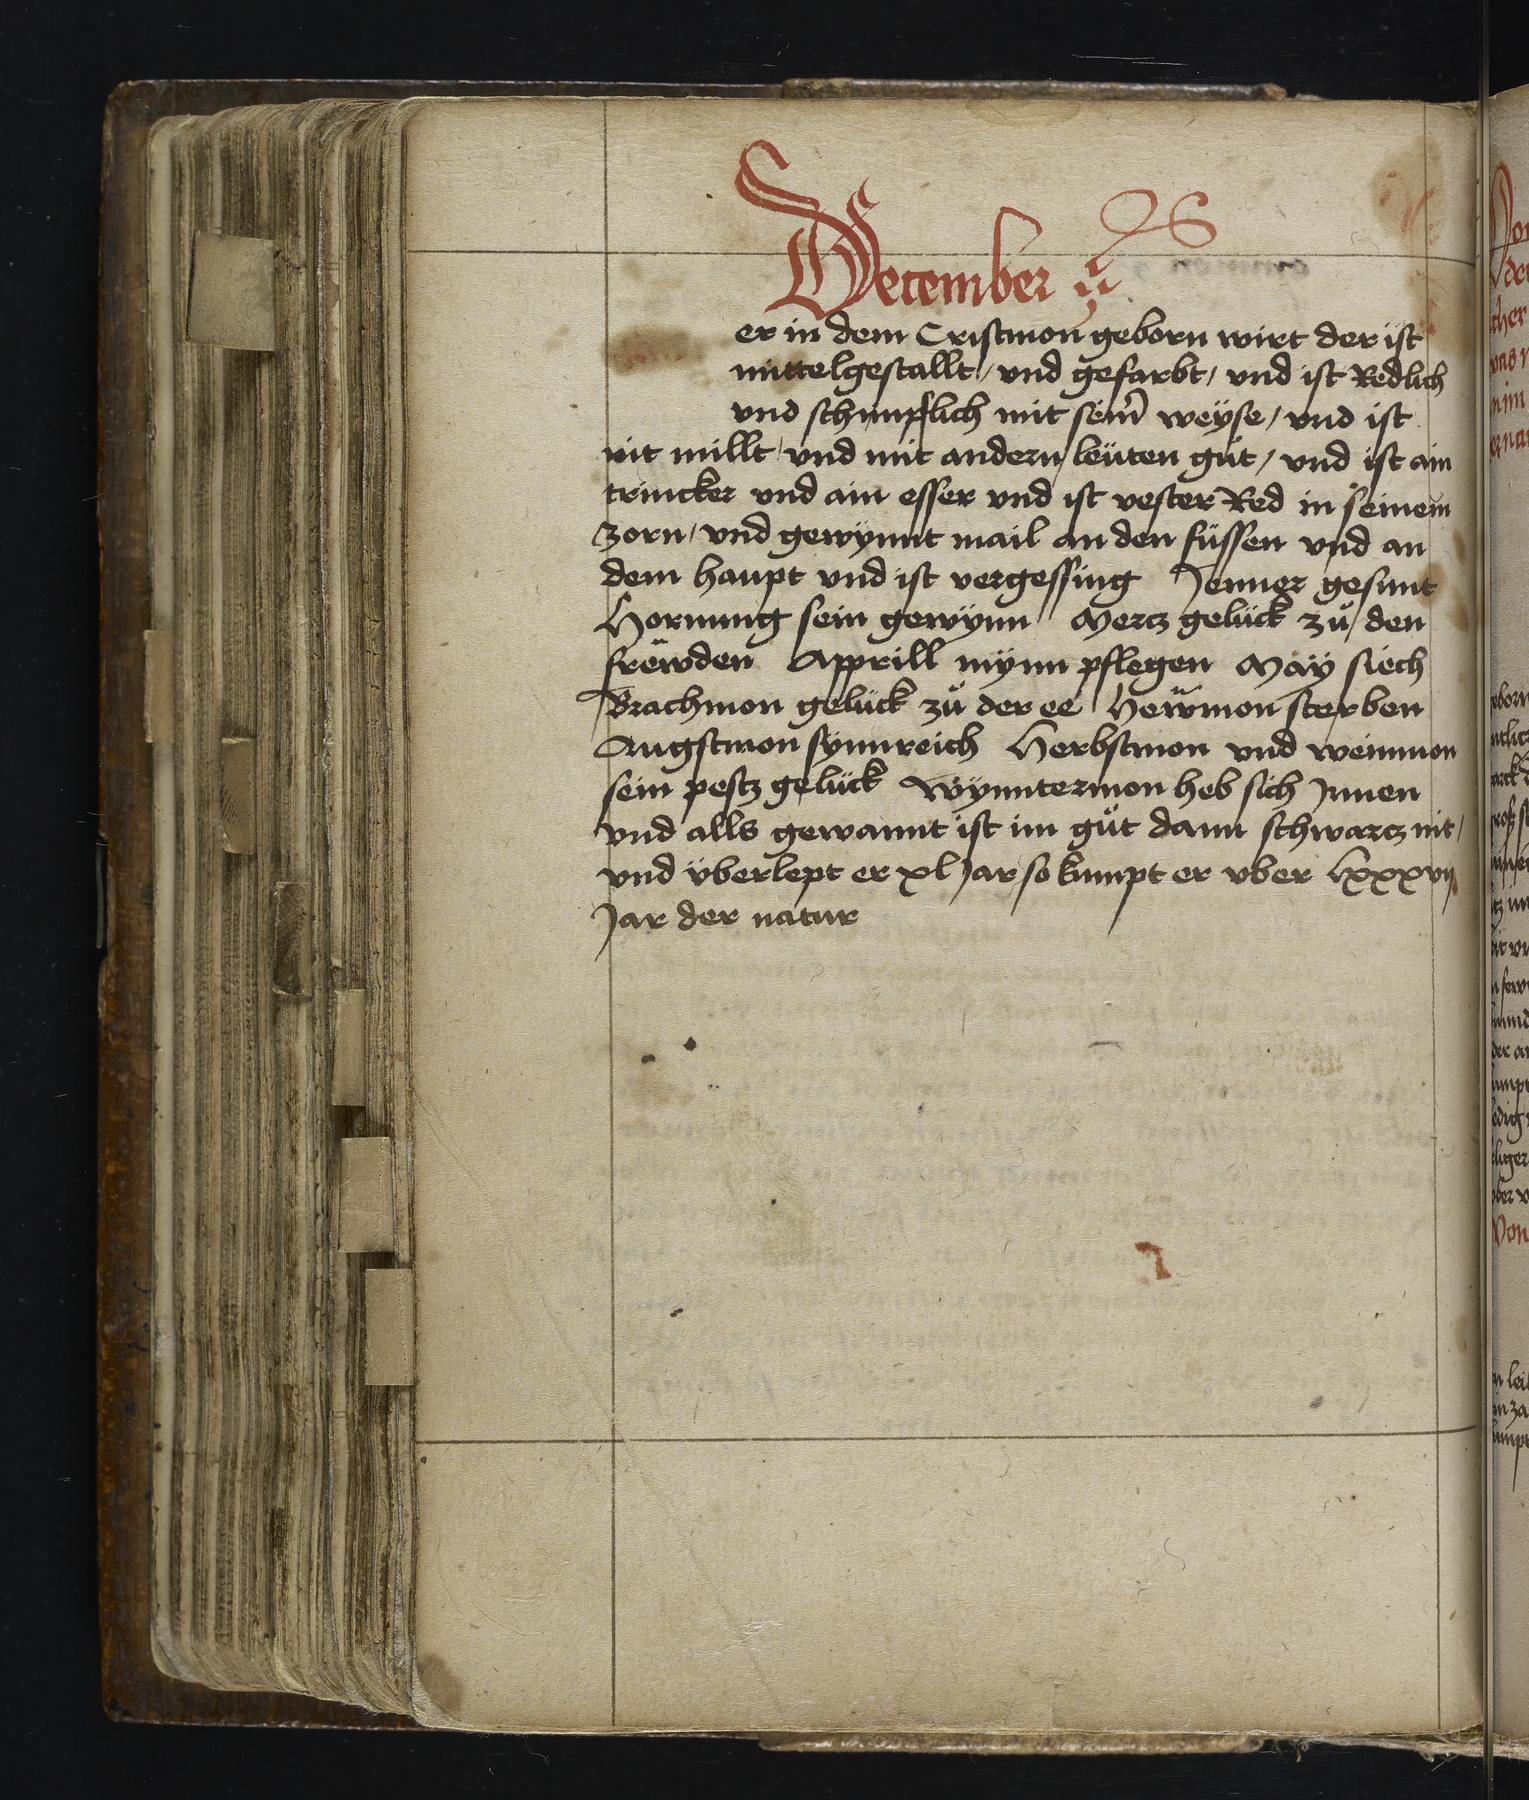 December
er in dem Cristmon geborn wirt der ist
mittelgestallt / vnd gefarbt / vnd ist Redlich
vnd schimpflich mit seim̄ weÿse / vnd ist
nit millt / vnd mit andern leüten gůt / vnd ist ain
trincker vnd ain esser vnd ist vester Red in seinem
zorn / vnd gewÿnnt mail an den füssen vnd an
dem haupt vnd ist vergessing Jenner gesunt
Hornung sein gewÿnn Mertz gelück zů den
frëwden Apprill mÿnn pflegen Maÿ siech
Brachmon gelück zů der ee Hewmon sterben
Augstmon sÿnnreich Herbstmon vnd weinmon
sein pestz gelück Wÿnntermon heb sich Jnnen
vnd alls gewannt ist im gůt dann schwartz nit /
vnd überlept er xl Jar so kumpt er vber lxxxvij
Jar der natur